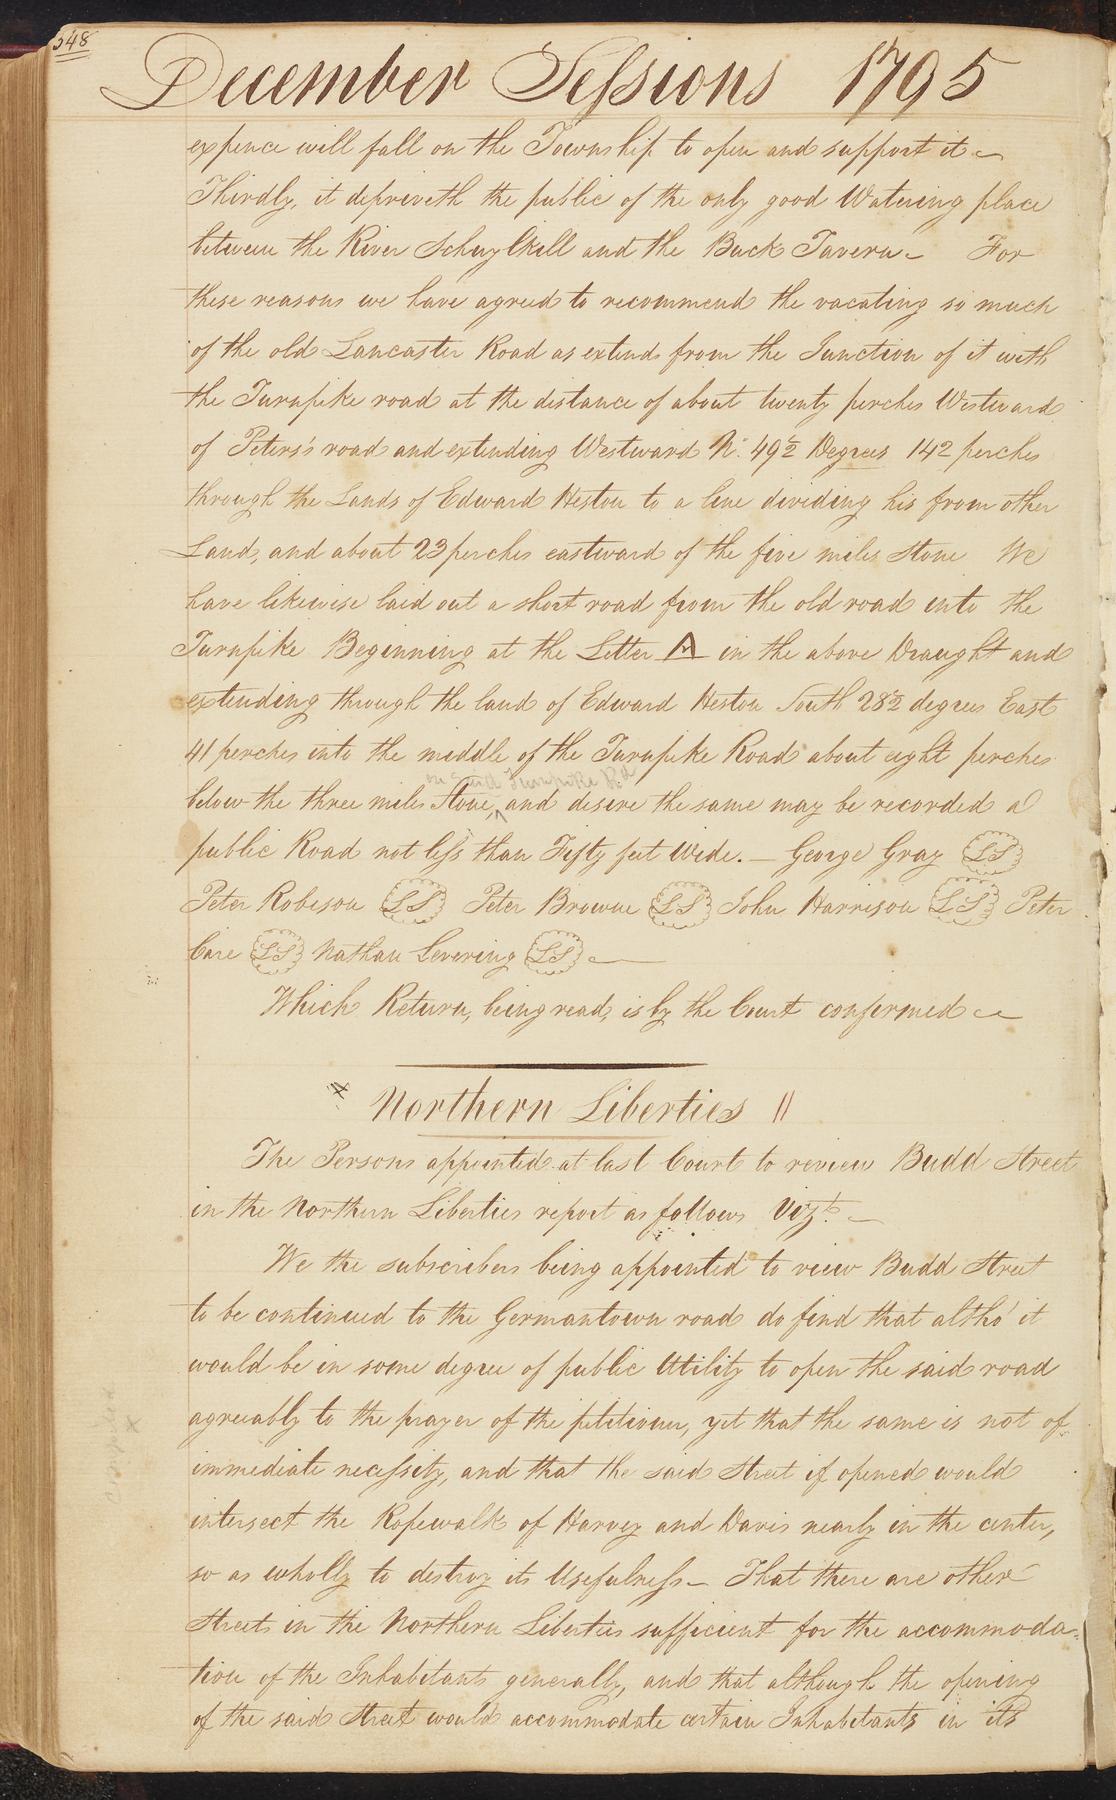 348
December Sessions 1795
expence will fall on the Township to open and support it
Thirdly, it depriveth the public of the only good Watering place
between the River Schuylkill and the Buck Tavern For
these reasons we have agreed to recommend the vacating so much
of the old Lancaster Road as extends from the Junction of it with
the Turnpike road at the distance of about twenty perches Westward
of Peters's road and extending Westward N. 49½ Degrees 142 perches
through the Lands of Edward Heston to a line dividing his from other
Land, and about 23 perches eastward of the five miles Stone We
have likewise laid out a short road from the old road into the
Turnpike Beginning at the Letter A in the above Draught and
extending through the land of Edward Heston South 28½ degrees East
41 perches into the middle of the Turnpike Road about eight perches
on said Turnpike Rd
below the three miles Stone, ^ and desire the same may be recorded a
public Road not less than Fifty feet Wide. — George Gray LS
Peter Robeson LS Peter Browne LS John Harrison LS Peter
Care LS Nathan Levering LS
Which Return, being read, is by the Court confirmed
Northern Liberties ||
The Persons appointed at last Court to review Budd Street
in the Northern Liberties report as follows Vizt.
We the subscribers being appointed to view Budd Street
to be continued to the Germantown road do find that altho' it
would be in some degree of public Utility to open the said road
agreeably to the prayer of the petitioner, yet that the same is not of
immediate necessity, and that the said Street if opened would
intersect the Ropewalk of Harvey and Davis nearly in the center,
so as wholly to destroy its Usefulness — That there are other
Streets in the Northern Liberties sufficient for the accommoda-
tion of the Inhabitants generally, and that although the opening
of the said Street would accommodate certain Inhabitants in its